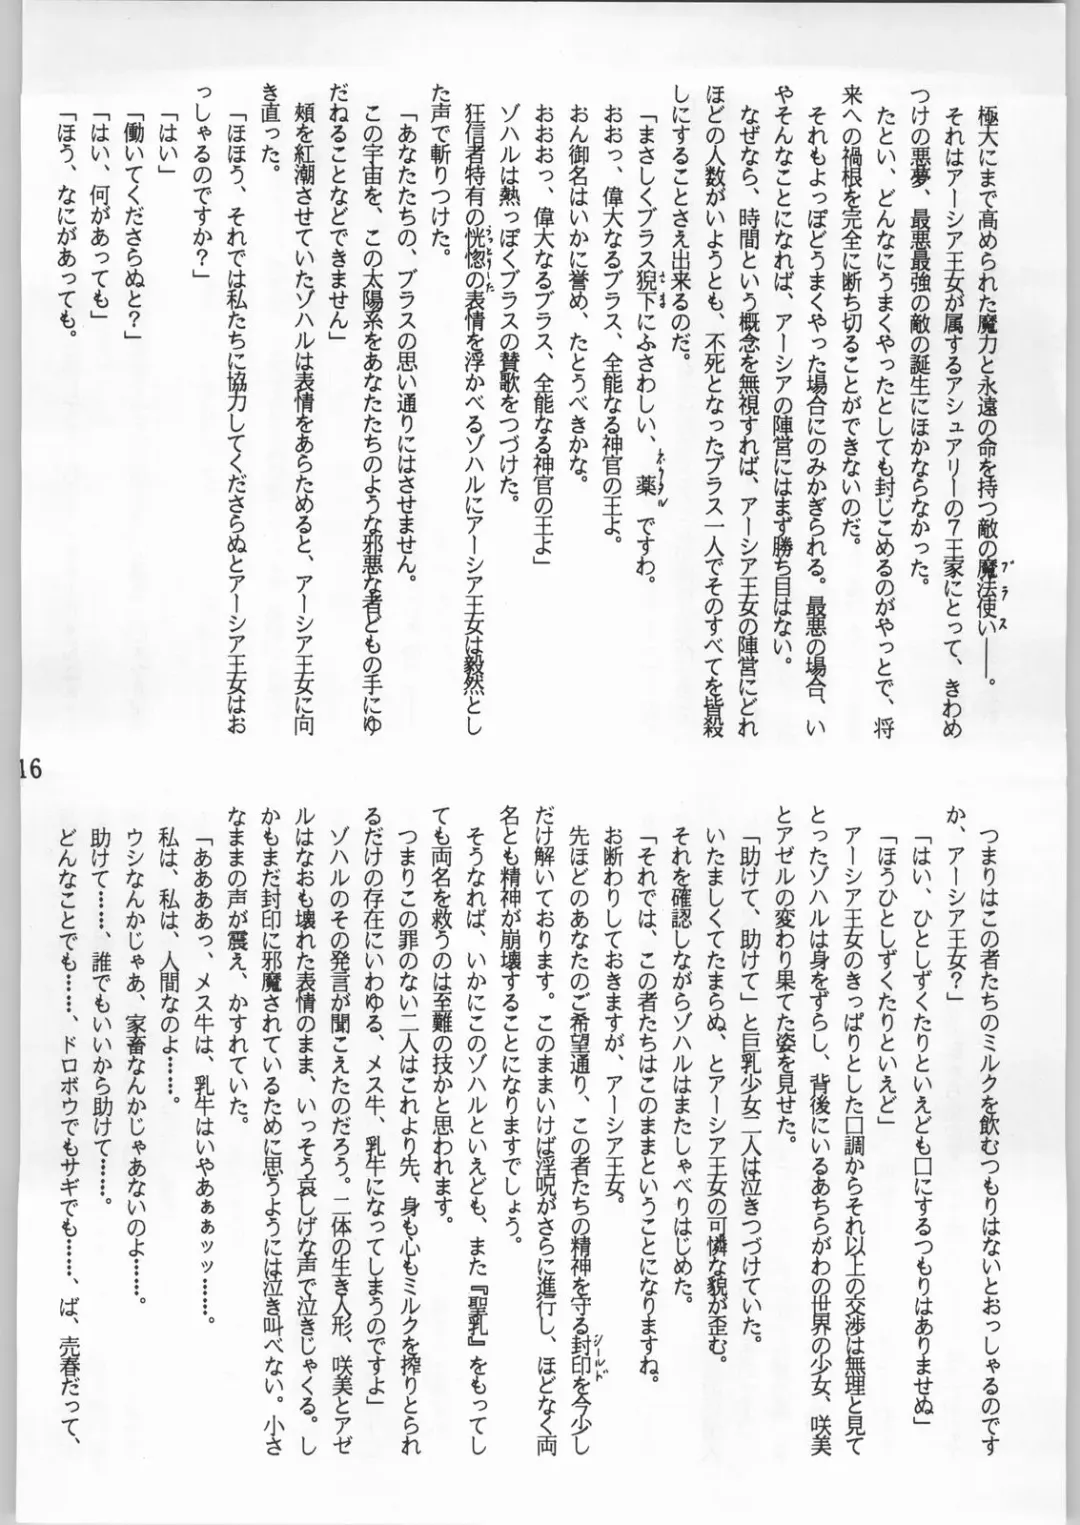 極大にまで高められた魔力と永遠の命を持つ敵の魔法使い――。
ブラス
それはアーシア王女が属するアシュアリーの7王家にとって、きわめ
つけの悪夢、最悪最強の敵の誕生にほかならなかった。
たとい、どんなにうまくやったとしても封じこめるのがやっとで、将
来への禍根を完全に断ち切ることができないのだ。
それもよっぽどうまくやった場合にのみかぎられる。最悪の場合、い
やそんなことになれば、アーシアの陣営にはまず勝ち目はない。
なぜなら、時間という概念を無視すれば、アーシア王女の陣営にどれ
ほどの人数がいようとも、不死となったブラス一人でそのすべてを皆殺
しにすることさえ出来るのだ。
「まさしくブラス猊下にふさわしい、薬ですわ。
さま
ネクタル
おおっ、偉大なるブラス、全能なる神官の王よ。
おん御名はいかに誉め、たとうべきかな。
おおおっ、偉大なるブラス、全能なる神官の王よ」
ゾハルは熱っぽくブラスの賛歌をつづけた。
狂信者特有の恍惚の表情を浮かべるゾハルにアーシア王女は毅然とし
うっとりした
た声で斬りつけた。
「あなたたちの、ブラスの思い通りにはさせません。
この宇宙を、この太陽系をあなたたちのような邪悪な者どもの手にゆ
だねることなどできません」
頬を紅潮させていたゾハルは表情をあらためると、アーシア王女に向
き直った。
「ほほう、それでは私たちに協力してくださらぬとアーシア王女はお
っしゃるのですか？」
「はい」
「働いてくださらぬと？」
「はい、何があっても」
「ほう、なにがあっても。
つまりはこの者たちのミルクを飲むつもりはないとおっしゃるのです
か、アーシア王女？」
「はい、ひとしずくたりといえども口にするつもりはありませぬ」
「ほうひとしずくたりといえど」
アーシア王女のきっぱりとした口調からそれ以上の交渉は無理と見て
とったゾハルは身をずらし、背後にいるあちらがわの世界の少女、咲美
とアゼルの変わり果てた姿を見せた。
「助けて、助けて」と巨乳少女二人は泣きつづけていた。
いたましくてたまらぬ、とアーシア王女の可憐な貌が歪む。
それを確認しながらゾハルはまたしゃべりはじめた。
「それでは、この者たちはこのままということになりますね。
お断わりしておきますが、アーシア王女。
先ほどのあなたのご希望通り、この者たちの精神を守る封印を今少し
シールド
だけ解いております。このままいけば淫呪がさらに進行し、ほどなく両
名とも精神が崩壊することになりますでしょう。
そうなれば、いかにこのゾハルといえども、また『聖乳』をもってし
ても両名を救うのは至難の技かと思われます。
つまりこの罪のない二人はこれより先、身も心もミルクを搾りとられ
るだけの存在にいわゆる、メス牛、乳牛になってしまうのですよ」
ゾハルのその発言が聞こえたのだろう。二体の生き人形、咲美とアゼ
ルはなおも壊れた表情のまま、いっそう哀しげな声で泣きじゃくる。し
かもまだ封印に邪魔されているために思うようには泣き叫べない。小さ
なままの声が震え、かすれていた。
「ああああっ、メス牛は、乳牛はいやあぁぁッッ……。
私は、私は、人間なのよ……。
ウシなんかじゃあ、家畜なんかじゃあないのよ……。
助けて……、誰でもいいから助けて……。
どんなことでも……、ドロボウでもサギでも……、ば、売春だって、
16